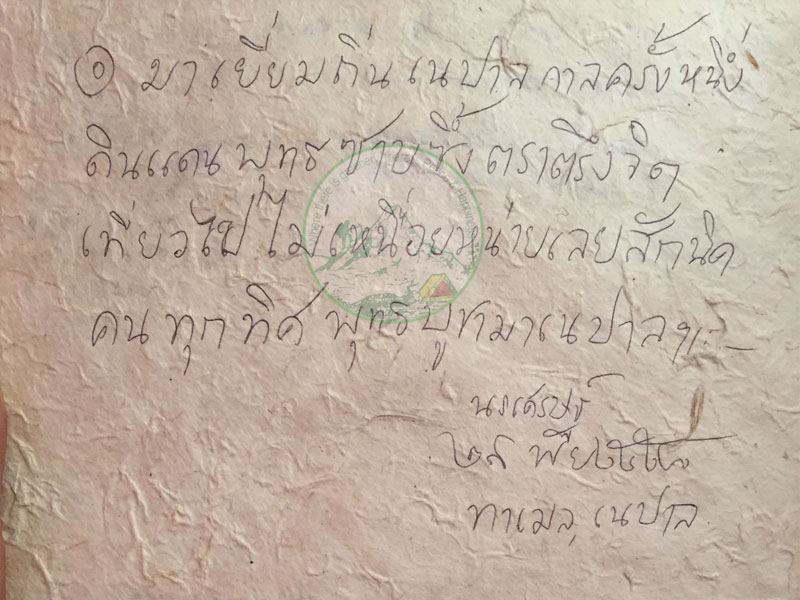 ๏ มาเยี่ยมถิ่นเนปาลกาลครั้งหนึ่ง
ดินแดนพุทธซาบซึ้งตราตรึงจิต
เที่ยวไปไม่เหนื่อยหน่ายเลยสักนิด
คนทุกทิศพุทธบูชามาเนปาลฯะ–
นรเศรษฐ์
๒๘
ทาเมล, เนปาล